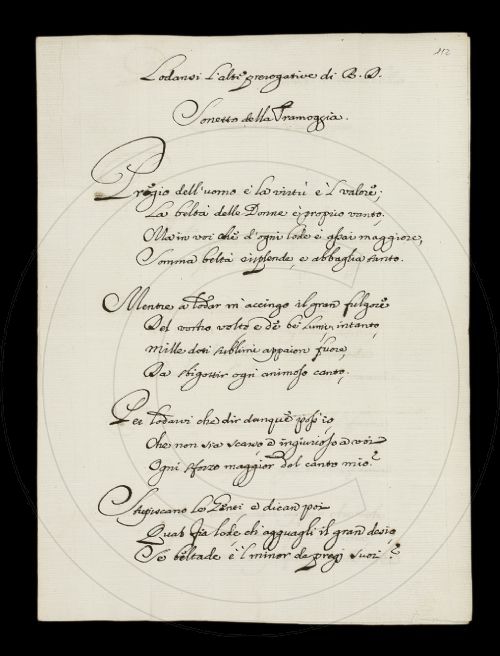 112
Lodansi l'alte prerogative di B. D.
Sonetto della Tramoggia.
Pregio dell'uomo è la virtù e 'l valore;
La beltà delle Donne è proprio vanto,
Ma in voi che d'ogni lode è assai maggiore,
Somma beltà risplende, e abbaglia tanto.
Mentre a lodar m'accingo il gran fulgore
Del vostro volto e de' bei lumi, intanto,
Mille doti sublimi appaion fuore,
Da sbigottir ogni animoso canto,
Per lodarvi che dir dunque poss'io,
Che non sia scarso, e ingiurioso a voi
Ogni sforzo maggior del canto mio?
Stupiscano le Genti e dican poi
Qual fia lode ch'agguagli il gran desio,
Se beltade è 'l minor de pregi suoi?